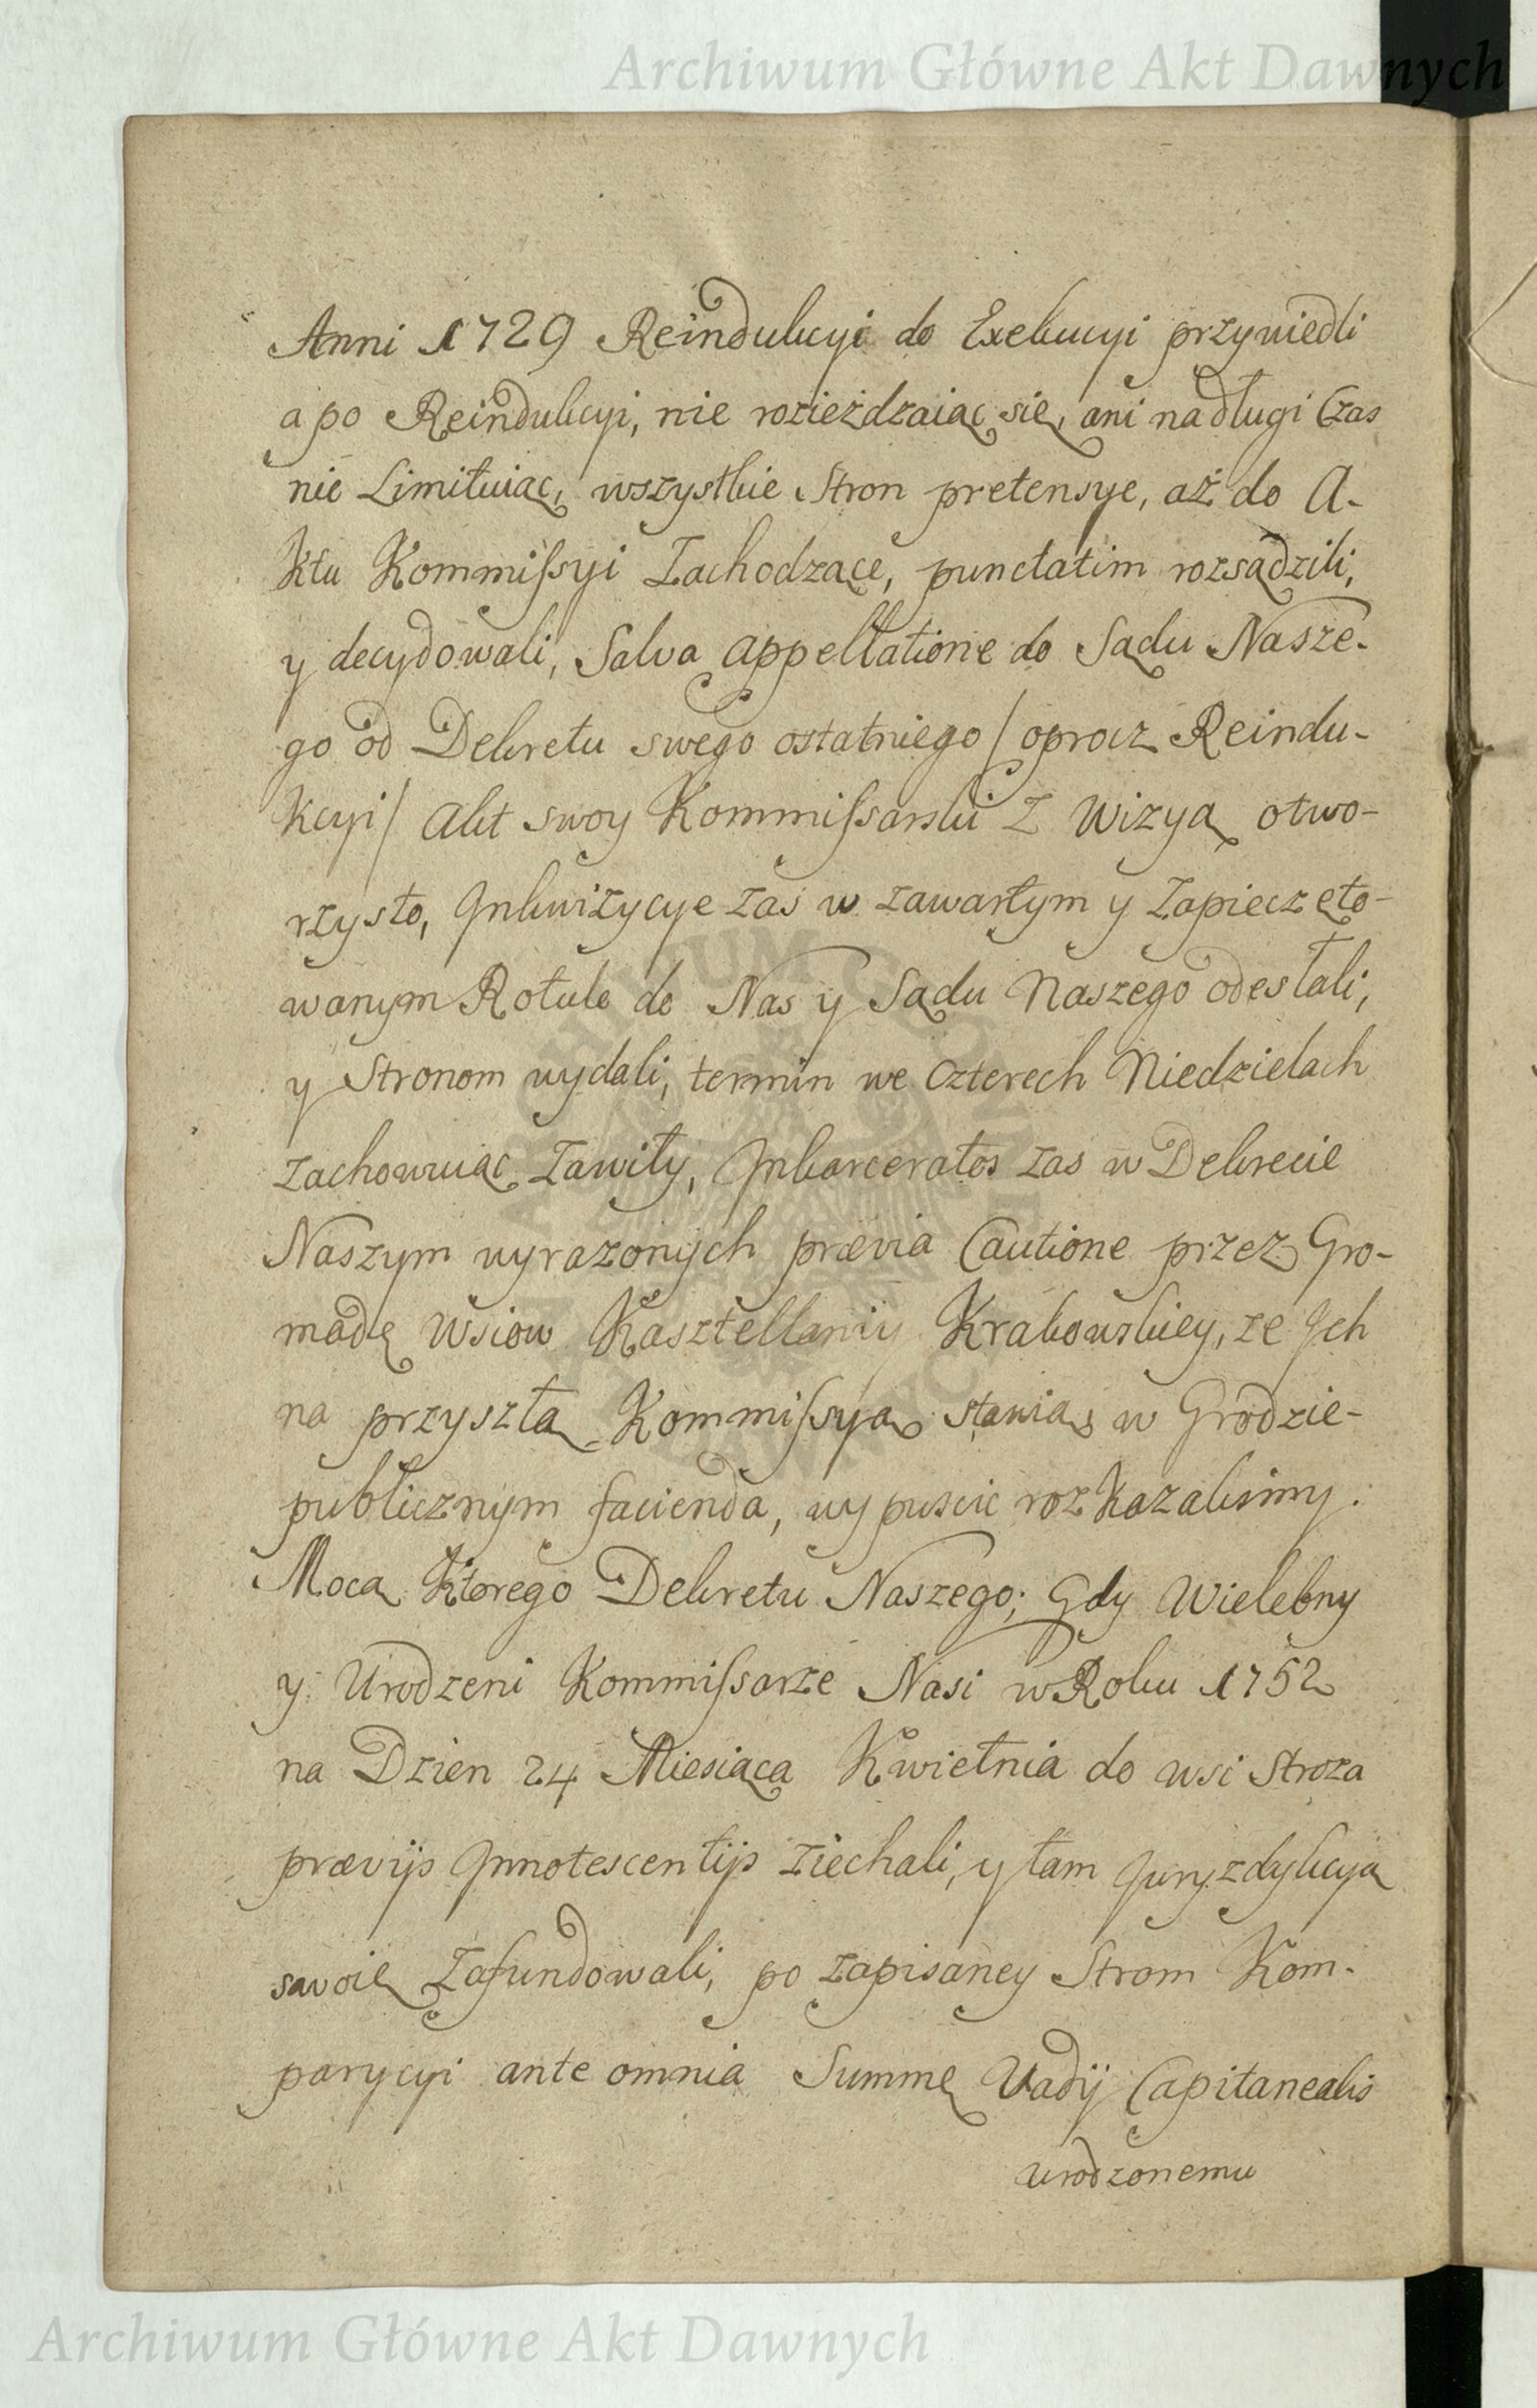 Archiwum Główne Akt Dawnych
Anni 1729 Reindukcyi do Exekucyi przywiedli
a po Reindukcyi, nie rozieżdzaiąc się, ani na długi Czas
nie Limituiąc, wszystkie Stron pretensye, aż do A-
ktu Kommissyi Zachodzące, punctatim rozsądzili,
y decydowali, Salva appellatione do Sądu Nasze-
go od Dekretu swego ostatniego / oprocz Reindu-
kcyi / Akt swoy Kommissarski Z Wizyą otwo-
rzysto, Inkwizycye zaś w zawartym y Zapieczęto-
wanym Rotule do Nas y Sądu Naszego odesłali,
y Stronom wydali, termin we czterech Niedzielach
zachowuiąc Zawity, Inkarceratos zas w Dekrecie
Naszym wyrazonych prævia Cautione przez Gro-
madę Wsiow Kasztellanij Krakowskiey, ze Ich
na przyszłą Kommissyą stawią, w Grodzie-
publicznym facienda, wypuscic rozkazalismy.
Mocą Ktorego Dekretu Naszego; Gdy Wielebny
y Urodzeni Kommissarze Nasi w Roku 1752
na Dzien 24 Miesiąca Kwietnia do wsi Stroza
prævijs Innotescentijs ziechali, y tam Juryzdykcyą
swoię Zafundowali, po zapisaney Stron Kom-
parycyi ante omnia Summę Vadij Capitanealis
urodzonemu
Archiwum Główne Akt Dawnych